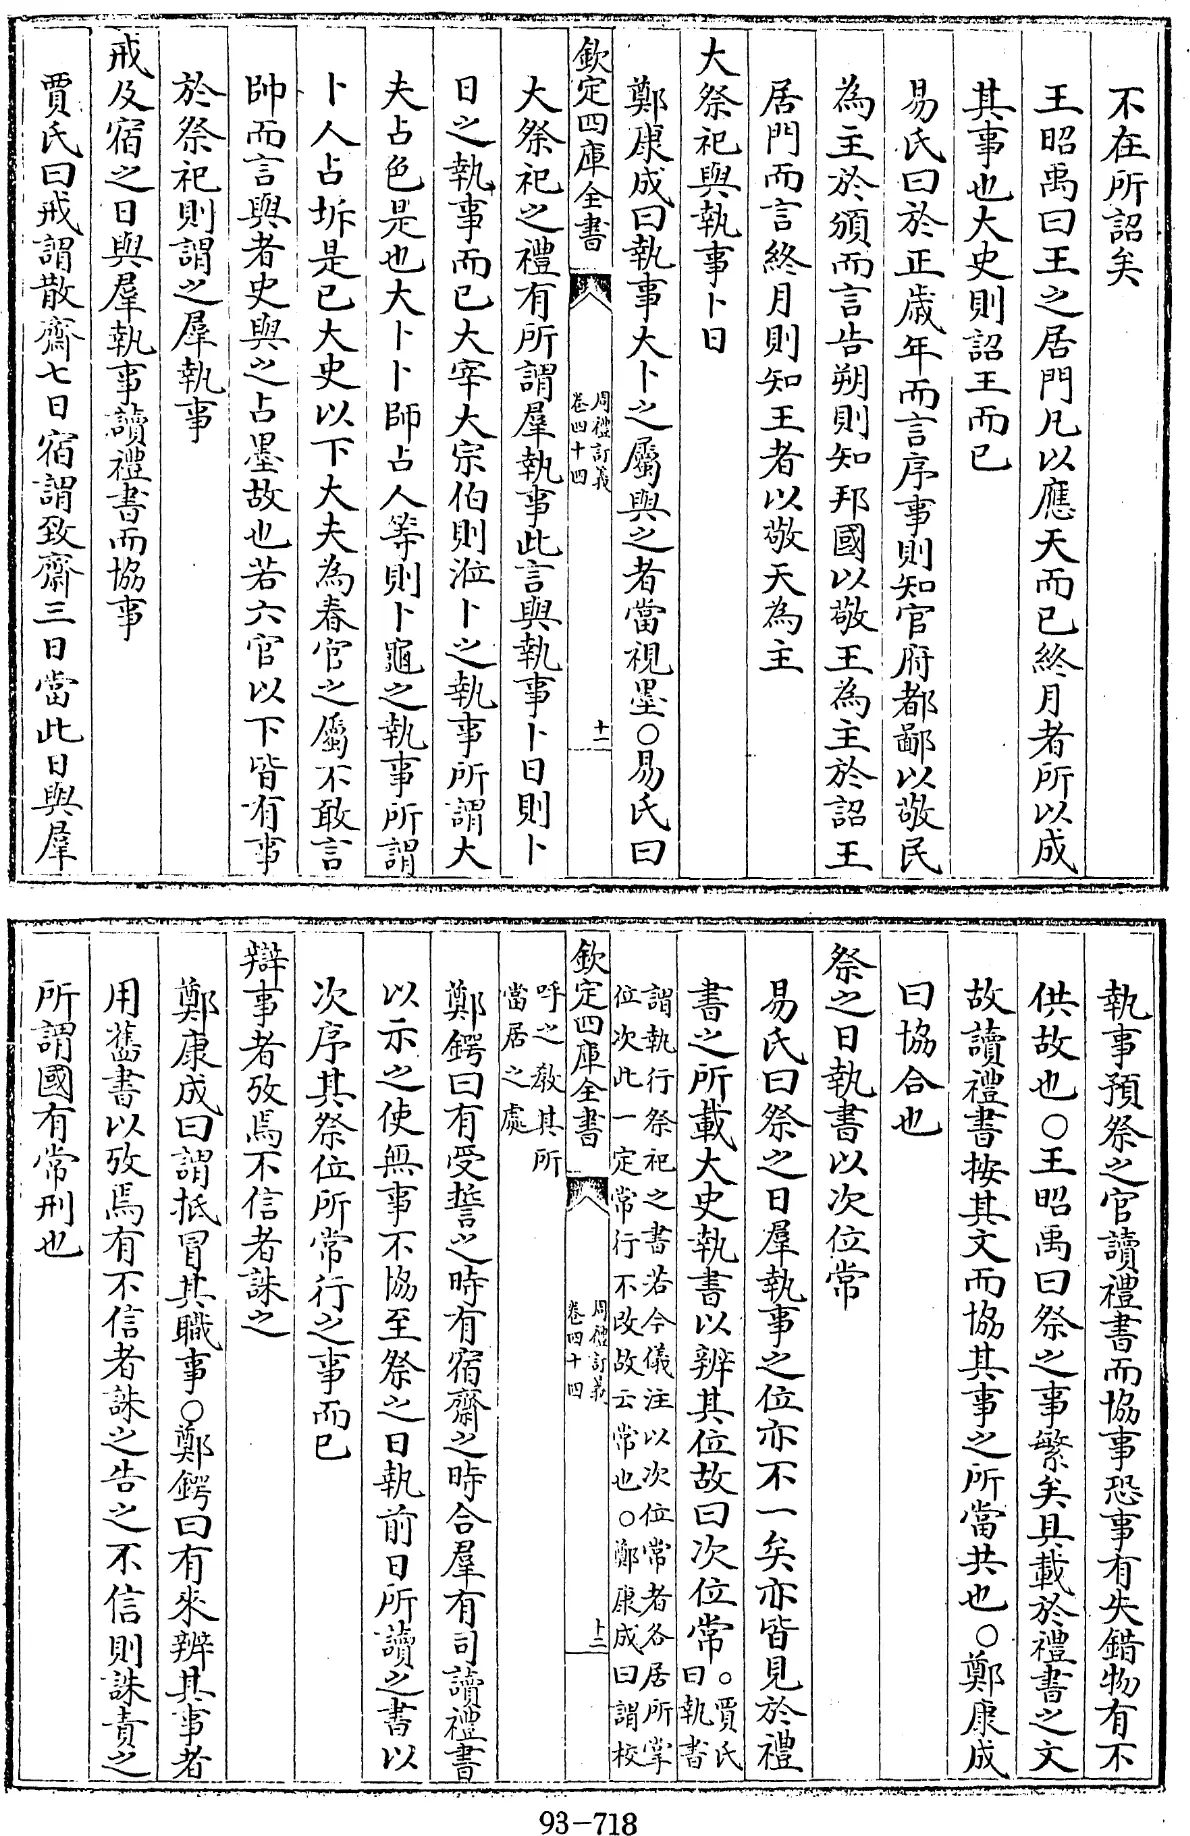 不在所詔矣
王昭禹曰王之居門凡以應天而已終月者所以成
其事也大史則詔王而已
易氏曰於正歲年而言序事則知官府都鄙以敬民
為主於頒而言告朔則知邦國以敬王為主於詔王
居門而言終月則知王者以敬天為主
大祭祀與執事卜日
鄭康成曰執事大卜之屬與之者當視墨○易氏曰
欽定四庫全書
周禮訂義
卷四十四
十二
大祭祀之禮有所謂羣執事此言與執事卜日則卜
日之執事而已大宰大宗伯則涖卜之執事所謂大
夫占色是也大卜卜師占人等則卜龜之執事所謂
卜人占坼是已大史以下大夫為春官之屬不敢言
帥而言與者史與之占墨故也若六官以下皆有事
於祭祀則謂之羣執事
戒及宿之日與羣執事讀禮書而協事
賈氏曰戒謂散齋七日宿謂致齋三日當此日與羣
執事預祭之官讀禮書而協事恐事有失錯物有不
供故也○王昭禹曰祭之事繁矣具載於禮書之文
故讀禮書按其文而協其事之所當共也○鄭康成
曰協合也
祭之日執書以次位常
易氏曰祭之日羣執事之位亦不一矣亦皆見於禮
書之所載大史執書以辨其位故曰次位常○賈氏
曰執書
謂執行祭祀之書若今儀注以次位常者各居所掌
位次此一定常行不改故云常也○鄭康成曰謂校
呼之教其所
當居之處
欽定四庫全書
周禮訂義
卷四十四
十二
鄭鍔曰有受誓之時有宿齋之時合羣有司讀禮書
以示之使無事不協至祭之日執前日所讀之書以
次序其祭位所常行之事而已
辯事者攷焉不信者誅之
鄭康成曰謂抵冒其職事○鄭鍔曰有來辨其事者
用舊書以攷焉有不信者誅之告之不信則誅責之
所謂國有常刑也
93-718